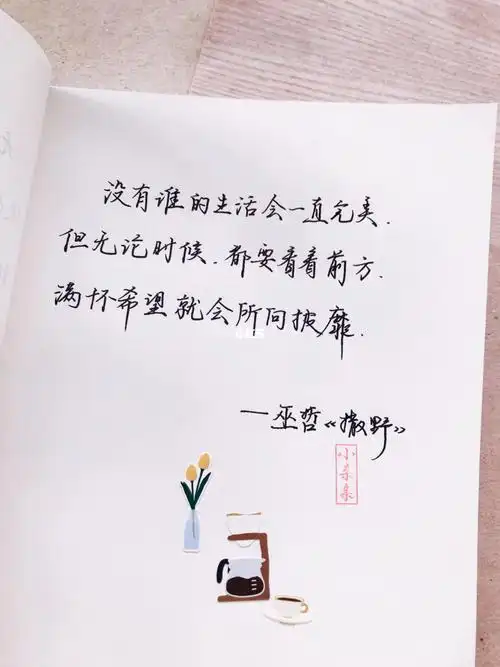 没有谁的生活会一直完美.
但无论时候.都要看看前方.
满怀希望就会所向披靡.
—巫哲《撒野》
小朵朵